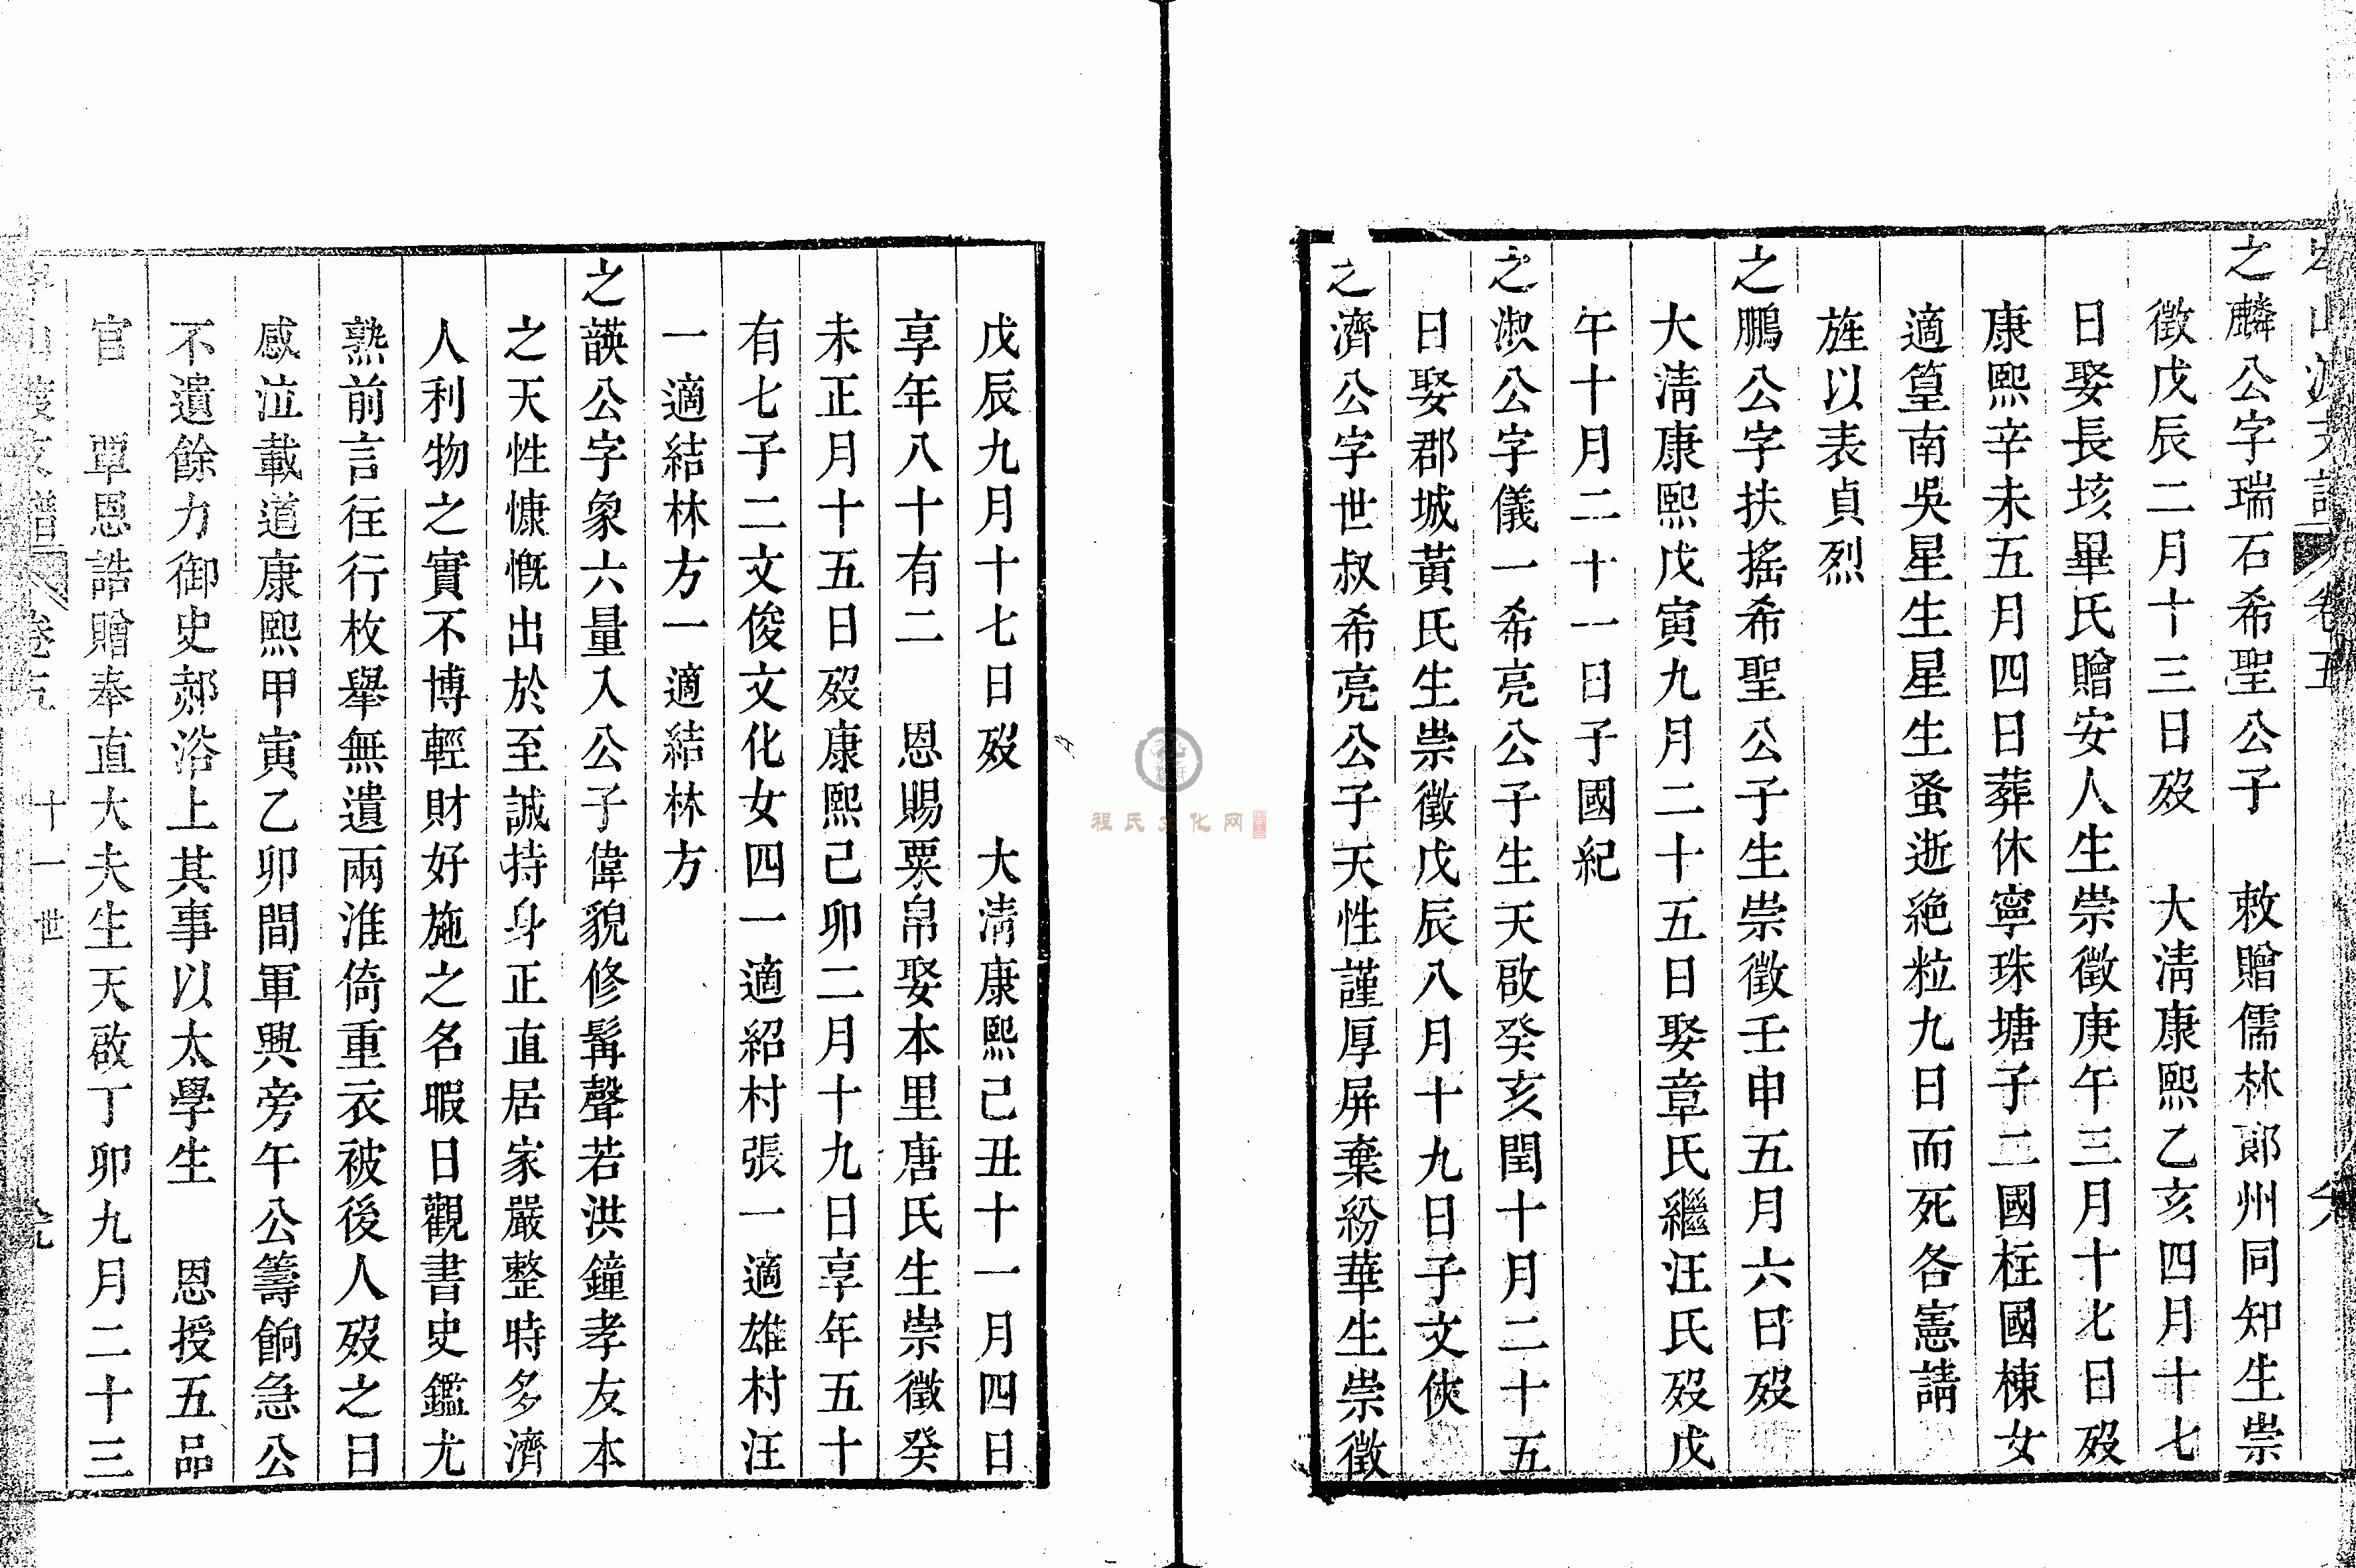 卷五
之麟公字瑞石希聖公子　敕贈儒林郎州同知生崇
徵戊辰二月十三日歿　大清康熙乙亥四月十七
日娶長垓畢氏贈安人生崇徵庚午三月十七日歿
康熙辛未五月四日葬休寧珠塘子二國柱國棟女
適篁南吳星生星生蚤逝絶粒九日而死各憲請
旌以表貞烈
之鵬公字扶搖希聖公子生崇徵壬申五月六日歿
大清康熙戊寅九月二十五日娶章氏繼汪氏歿戊
午十月二十一日子國紀
之淑公字儀一希亮公子生天啟癸亥閏十月二十五
日娶郡城黃氏生崇徵戊辰八月十九日子文俠
之濟公字世叔希亮公子天性謹厚屏棄紛華生崇徵
戊辰九月十七日歿　大清康熙己丑十一月四日
享年八十有二　恩賜粟帛娶本里唐氏生崇徵癸
未正月十五日歿康熙己卯二月十九日享年五十
有七子二文俊文化女四一適紹村張一適雄村汪
一適結林方一適結林方
之韺公字象六量入公子偉貌修髯聲若洪鐘孝友本
之天性慷慨出於至誠持身正直居家嚴整時多濟
人利物之實不博輕財好施之名暇日觀書史鑑尤
熟前言往行枚舉無遺兩淮倚重衣被後人歿之日
感泣載道康熙甲寅乙卯間軍興旁午公籌餉急公
不遺餘力御史郝浴上其事以太學生　恩授五品
官　覃恩誥贈奉直大夫生天啟丁卯九月二十三
卷五　十一世